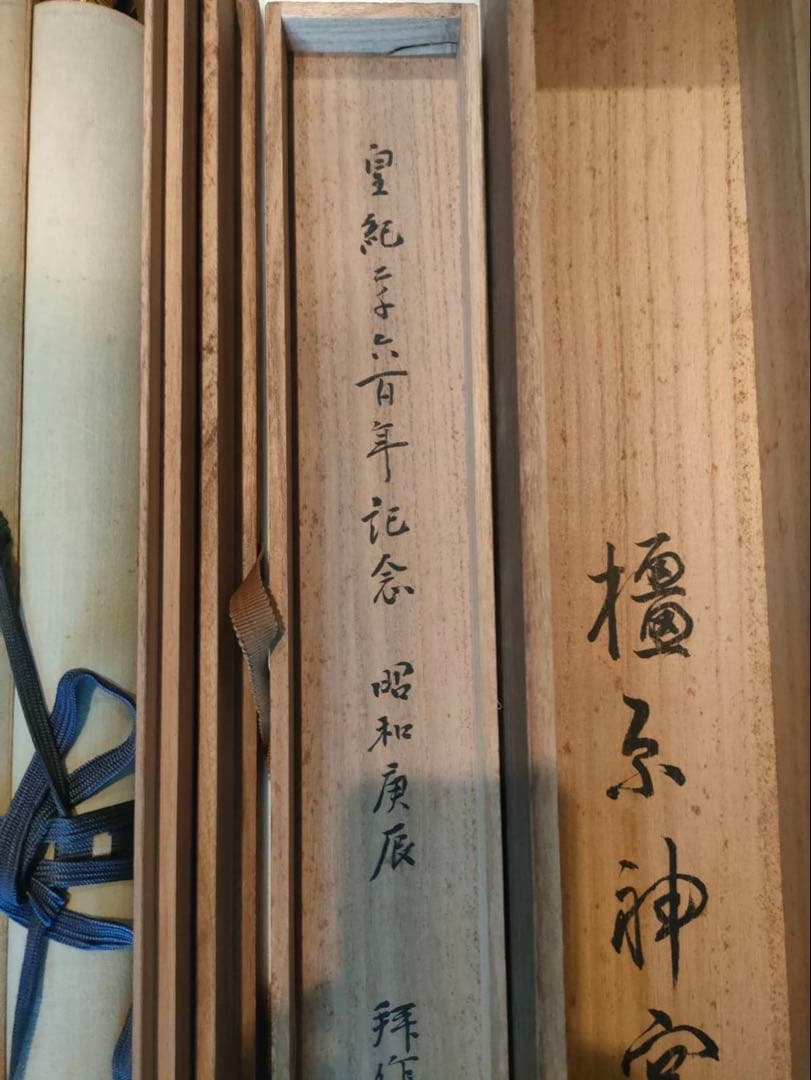 檀原神宮
皇紀二千六百年記念 昭和庚辰 拜作